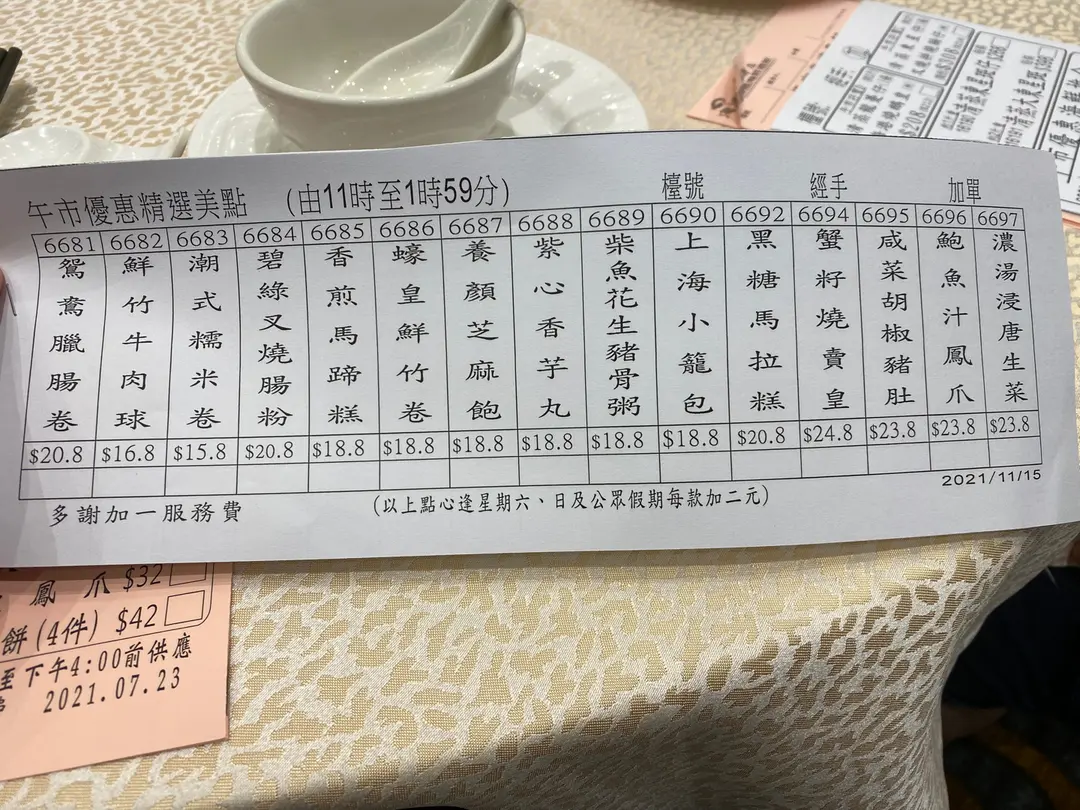 午市優惠精選美點 (由11時至1時59分) 檯號 經手 加單
6681 6682 6683 6684 6685 6686 6687 6688 6689 6690 6692 6694 6695 6696 6697
鴛鴦臘腸卷
鮮竹牛肉球
潮式糯米卷
碧綠叉燒腸粉
香煎馬蹄糕
蠔皇鮮竹卷
養顏芝麻飽
紫心香芋丸
柴魚花生豬骨粥
上海小籠包
黑糖馬拉糕
蟹籽燒賣皇
咸菜胡椒豬肚
鮑魚汁鳳爪
濃湯浸唐生菜
$20.8 $16.8 $15.8 $20.8 $18.8 $18.8 $18.8 $18.8 $18.8 $18.8 $20.8 $24.8 $23.8 $23.8 $23.8
多謝加一服務費 (以上點心逢星期六、日及公眾假期每款加二元) 2021/11/15
鳳爪 $32
餅(4件) $42
至下午4:00前供應
2021.07.23